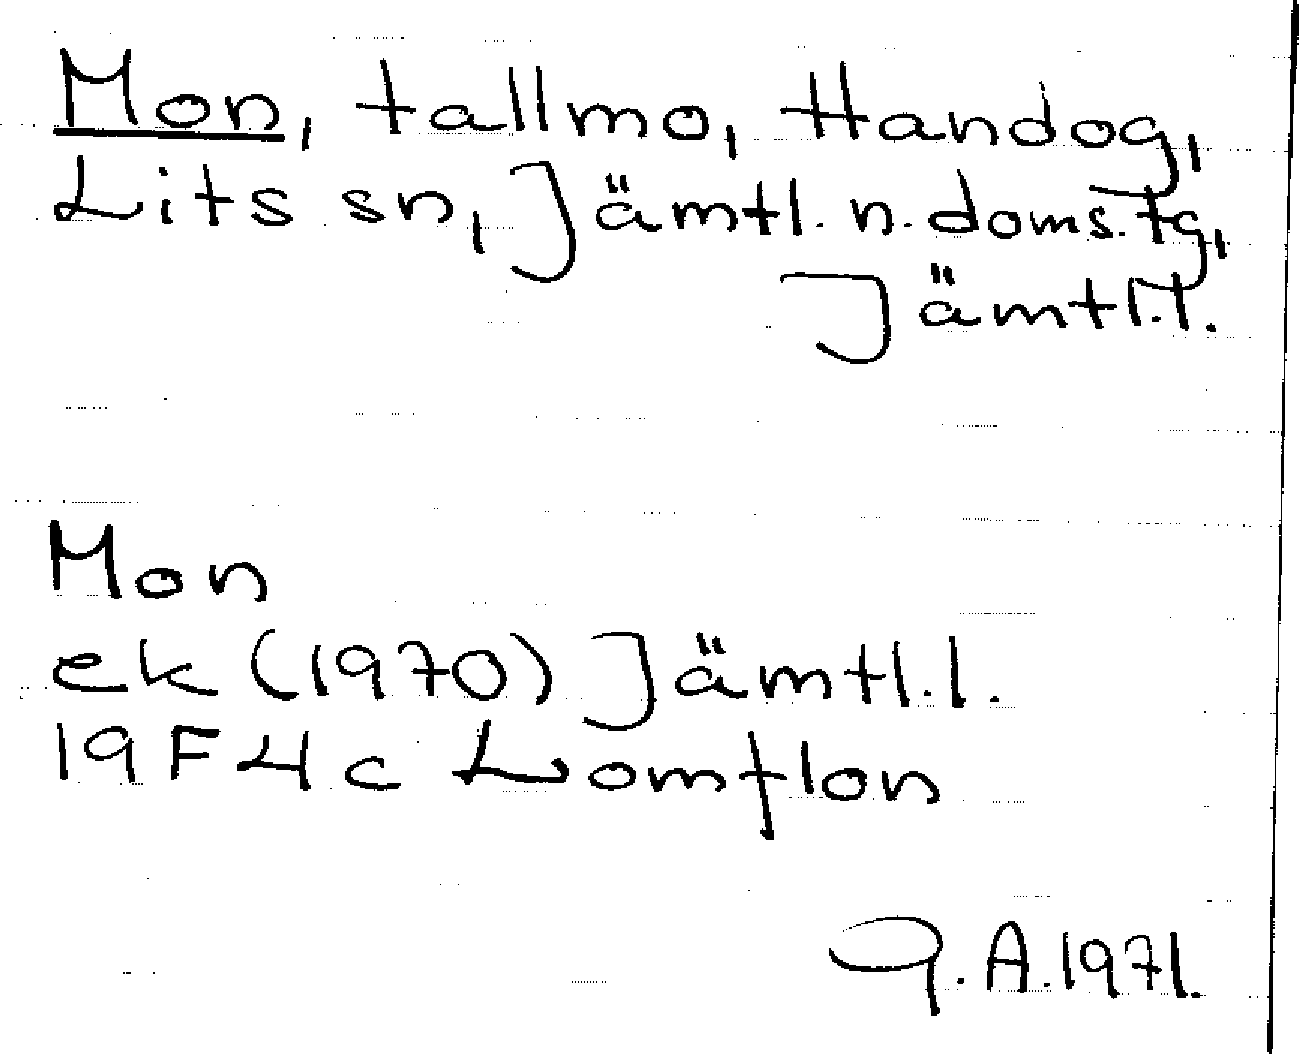 Mon, tallmo, Handog,
Lits sn, Jämtl. n. doms. tg,
Jämtl.l.
Mon
ek (1970) Jämtl.l.
19F4c Lomflon
G.A. 1971.